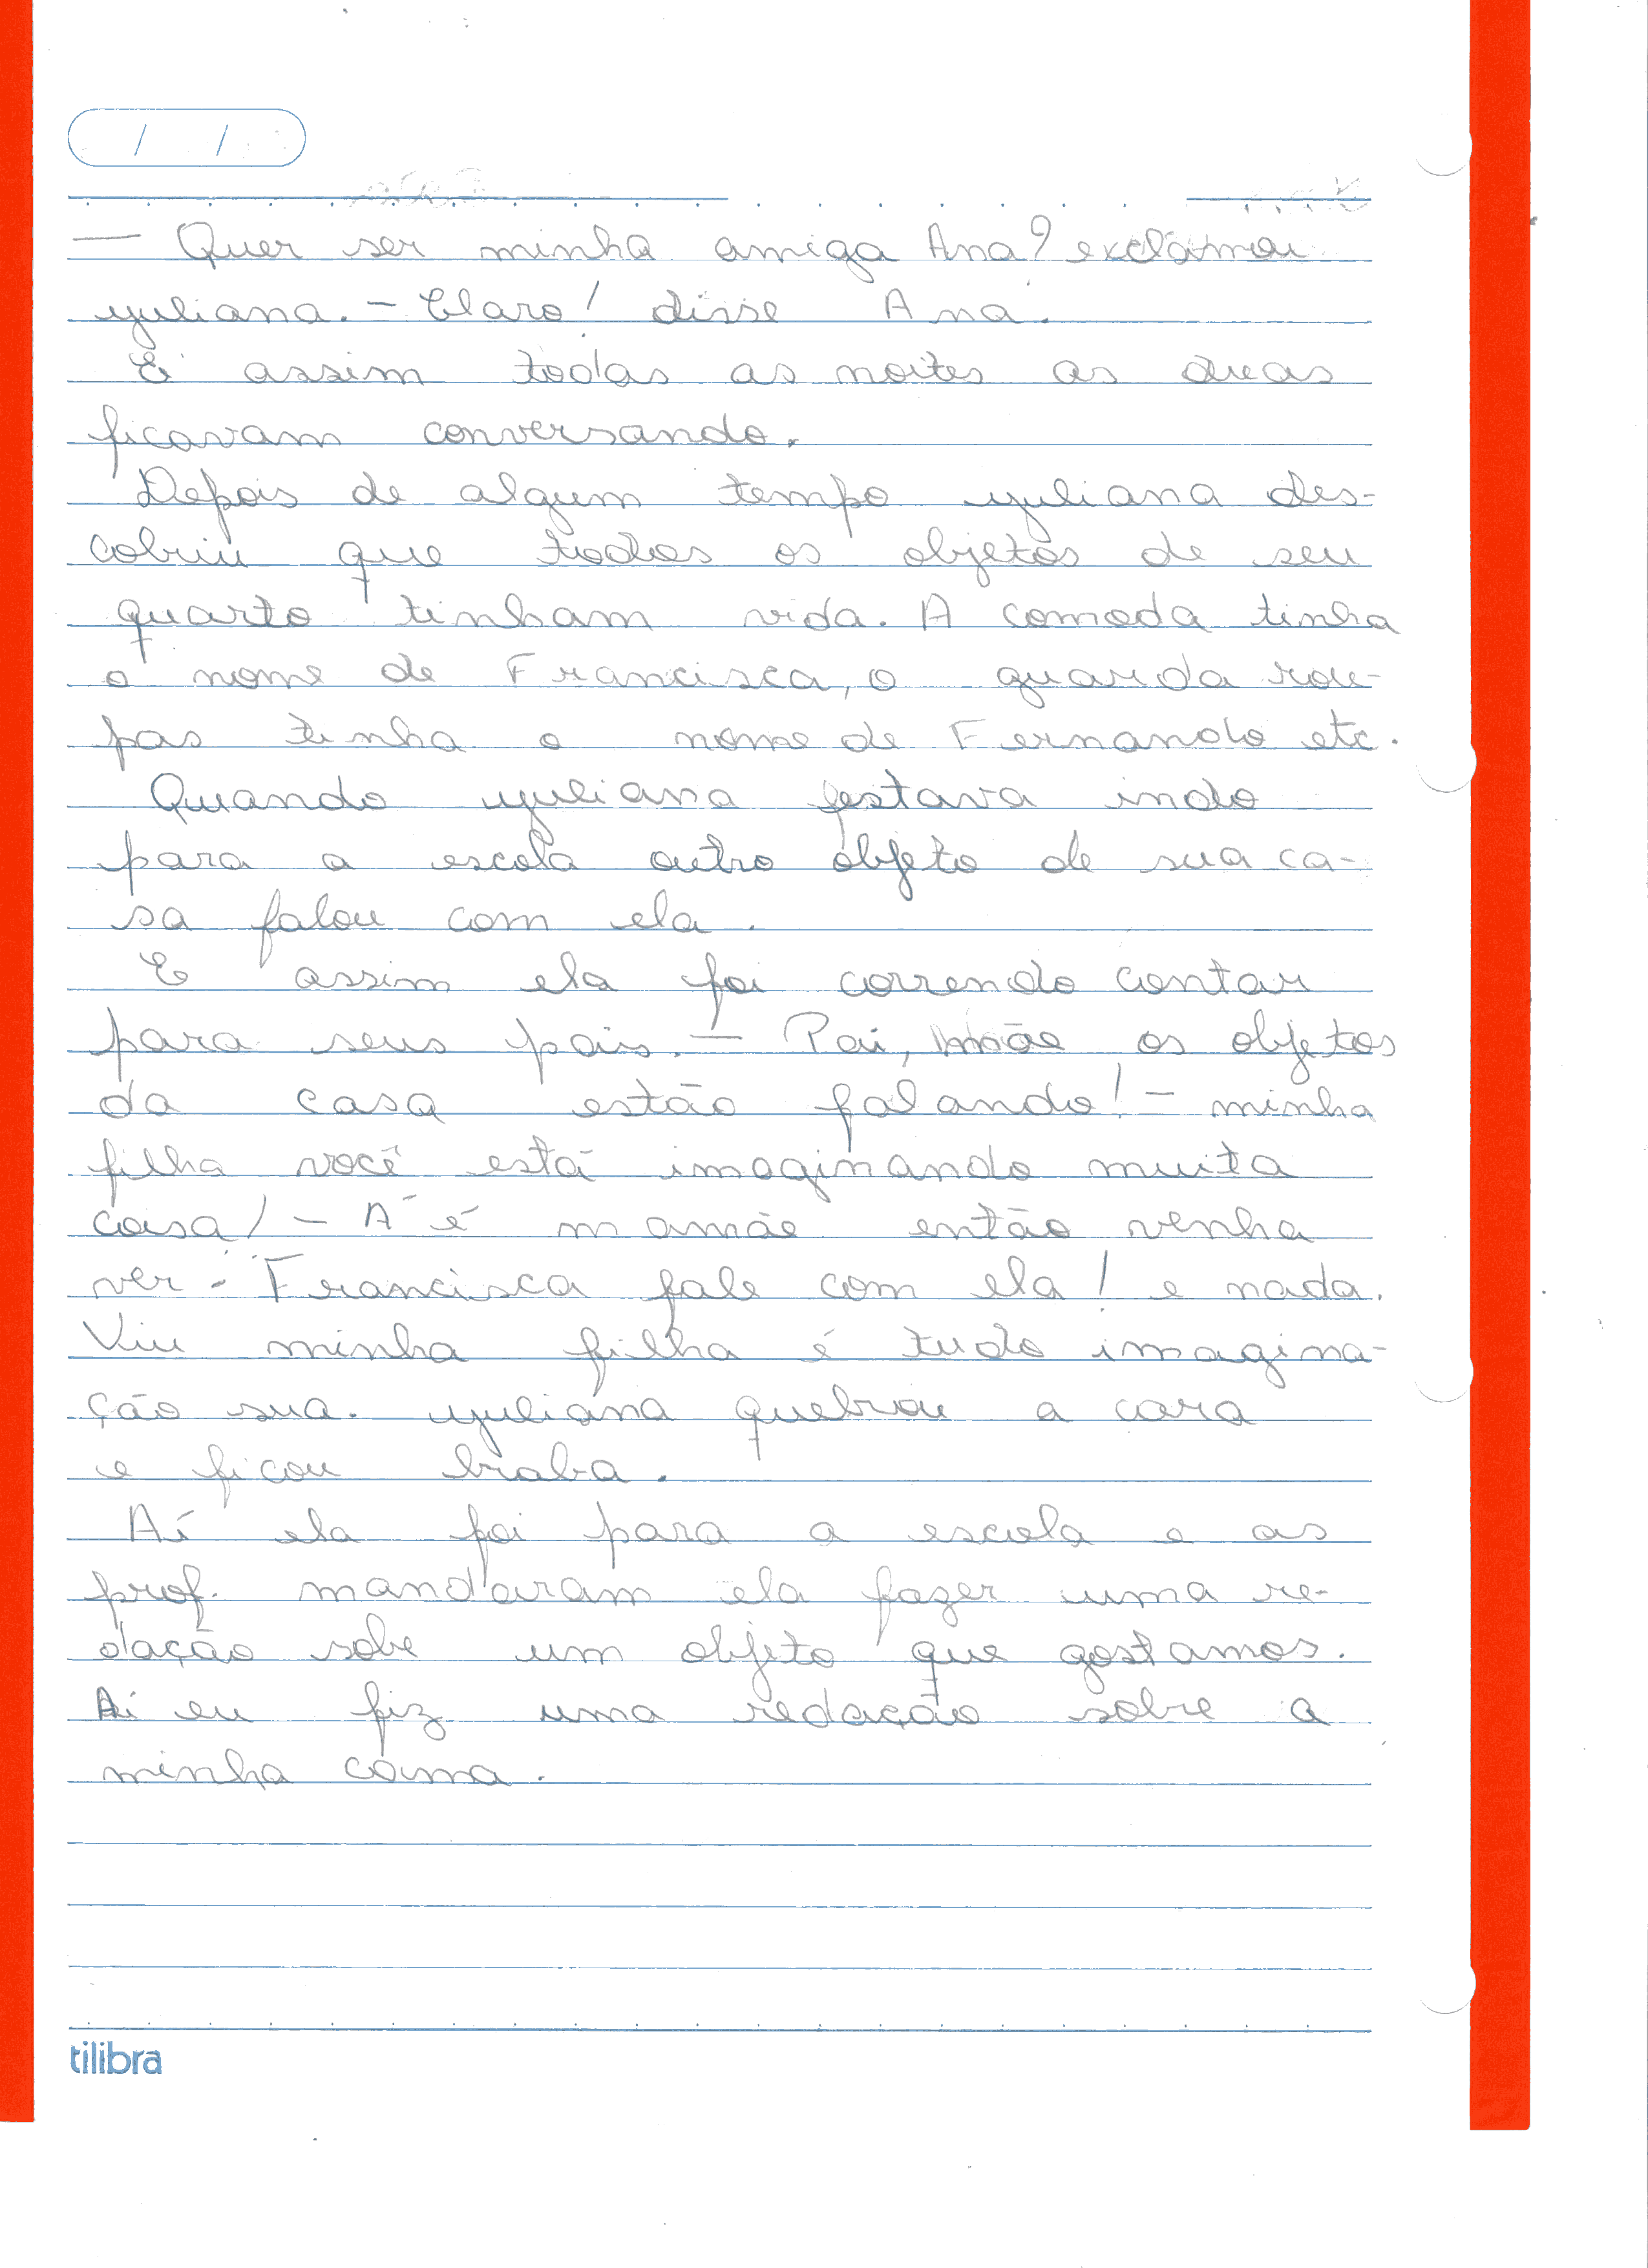 / /
— Quer ser minha amiga Ana? exclamou
yuliana. – Claro! disse Ana.
E assim todas as noites as duas
ficavam conversando.
Depois de algum tempo yuliana des-
cobriu que todos os objetos de seu
quarto tinham vida. A comoda tinha
o nome de Francisca, o guarda rou-
pas tinha o nome de Fernando etc.
Quando yuliana estava indo
para a escola outro objeto de sua ca-
sa falou com ela.
E assim ela foi correndo contar
para seus pais. – Pai, mãe os objetos
da casa estão falando! – minha
filha você está imaginando muita
coisa! – Á é mamãe então venha
ver - Francisca fale com ela! e nada.
Viu minha filha é tudo imagina-
ção sua. yuliana quebrou a cara
e ficou braba.
Aí ela foi para a escola e as
prof. mandaram ela fazer uma re-
dação sobe um objeto que gostamos.
Aí eu fiz uma redação sobre a
minha cama.
tilibra